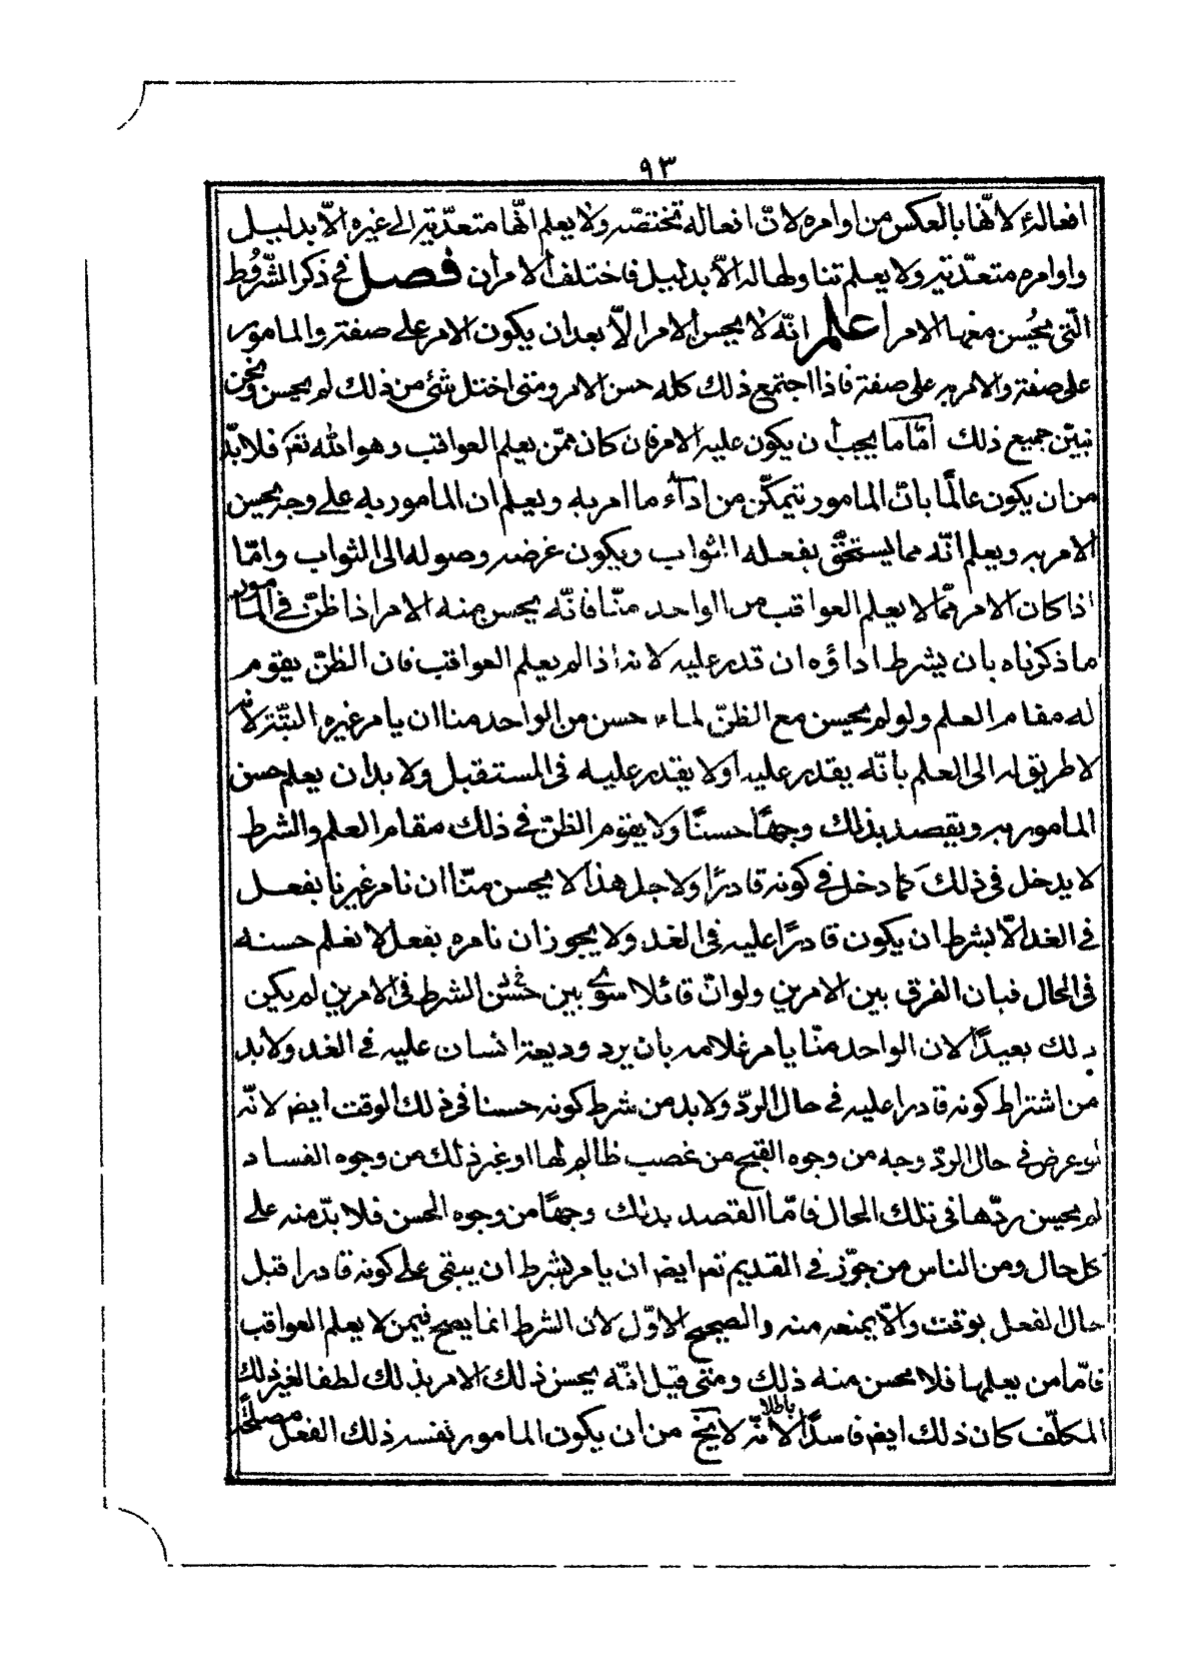 ٩٣
افعاله لانّها بالعكس من اوامره لانّ افعاله تختصّه ولا يعلم انّها متعدّية الى غيره الّا بدليل
واوامره متعدّية ولا يعلم تناولها له الّا بدليل فاختلف الامران فصل فى ذكر الشّروط
الّتى يحسن معها الامر اعلم انّه لا يحسن الامر الّا بعد ان يكون الامر على صفة والمامور
على صفة والامر به على صفة فاذا اجتمع ذلك كله حسن الامر ومتى اختل شئ من ذلك لم يحسن ونحن
نبيّن جميع ذلك امّا ما يجب ان يكون عليه الامر فان كان ممّن يعلم العواقب وهو الله تعم فلا بدّ
من ان يكون عالمًا بانّ المامور يتمكّن من اداء ما امر به ويعلم ان المامور به على وجه يحسن
الامر به ويعلم انّه مما يستحقّ بفعله الثواب ويكون غرضه وصوله الى الثواب وامّا
اذا كان الامر ممّا لا يعلم العواقب من الواحد منّا فانّه يحسن منه الامر اذا ظنّ فى المامور
ما ذكرناه بان يشرط اداؤه ان قدر عليه لانه اذا لم يعلم العواقب فان الظنّ يقوم
له مقام العلم ولو لم يحسن مع الظنّ لماء حسن من الواحد منا ان يامر غيره البتّة لانه
لا طريق له الى العلم بأنّه يقدر عليه او لا يقدر عليه فى المستقبل ولا بد ان يعلم حسن
المامور به ويقصد بذلك وجهًا حسنًا ولا يقوم الظنّ فى ذلك مقام العلم والشرط
لا يدخل فى ذلك كما دخل فى كونه قادرًا ولاجل هذا لا يحسن منّا ان نامر غيرنا بفعل
فى الغد الّا بشرط ان يكون قادرًا عليه فى الغد ولا يجوز ان نامره بفعل لا نعلم حسنه
فى الحال فبان الفرق بين الامرين ولو انّ قائلا سوى بين حُسن الشرط فى الامرين لم يكن
ذلك بعيدًا لان الواحد منّا يامر غلامه بان يرد وديعة انسان عليه فى الغد ولا بد
من اشتراط كونه قادرا عليه فى حال الردّ ولا بد من شرط كونه حسنا فى ذلك الوقت ايضم لانّه
لو عرض فى حال الردّ وجه من وجوه القبح من غصب ظالم لها او غير ذلك من وجوه الفساد
لم يحسن ردّها فى تلك الحال فامّا القصد بذلك وجهًا من وجوه الحسن فلا بدّ منه على
كل حال ومن الناس من جوّز فى القديم تعم ايضم ان يامر بشرط ان يبقى على كونه قادرا قبل
حال الفعل بوقت والّا يمنعه منه والصحيح الاوّل لان الشرط انما يصح فيمن لا يعلم العواقب
فامّا من يعلمها فلا يحسن منه ذلك ومتى قيل انّه يحسن ذلك الامر بذلك لطفا لغير ذلك
المكلّف كان ذلك ايضم فاسدًا باطلا لانّه لا يخ من ان يكون المامور نفسه ذلك الفعل مصلحة